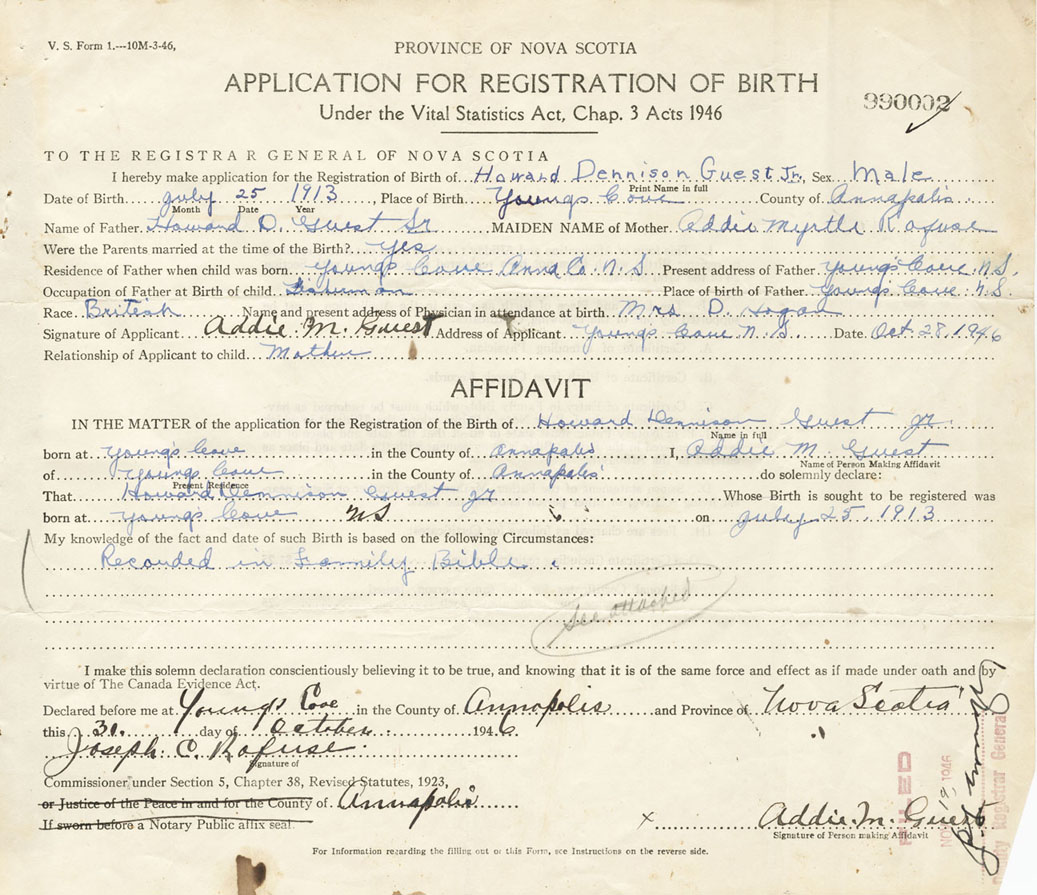 V. S. Form 1.---10M-3-46,
PROVINCE OF NOVA SCOTIA
APPLICATION FOR REGISTRATION OF BIRTH
990002
Under the Vital Statistics Act, Chap. 3 Acts 1946
TO THE REGISTRAR GENERAL OF NOVA SCOTIA
I hereby make application for the Registration of Birth of Howard Dennison Guest Jr. Sex Male
Print Name in full
Date of Birth July 25 1913, Place of Birth Youngs Cove County of Annapolis
Month Date Year
Name of Father Howard D. Guest Sr MAIDEN NAME of Mother Addie Myrtle Rafuse
Were the Parents married at the time of the Birth? yes
Residence of Father when child was born Youngs Cove Anna Co. N.S. Present address of Father Young's Cove N.S.
Occupation of Father at Birth of child Fisherman Place of birth of Father Young's Cove N.S.
Race British Name and present address of Physician in attendance at birth Mrs D. Hogan
Signature of Applicant Addie M. Guest Address of Applicant Youngs Cove N.S Date Oct 28, 1946
Relationship of Applicant to child Mother
AFFIDAVIT
IN THE MATTER of the application for the Registration of the Birth of Howard Dennison Guest Jr
Name in full
born at Young's Cove in the County of Annapolis I, Addie M Guest
Name of Person Making Affidavit
of Youngs Cove in the County of Annapolis do solemnly declare:
Present Residence
That Howard Dennison Guest Jr Whose Birth is sought to be registered was
born at Youngs Cove NS on July 25, 1913
My knowledge of the fact and date of such Birth is based on the following Circumstances:
Recorded in Family Bible.
See attached
I make this solemn declaration conscientiously believing it to be true, and knowing that it is of the same force and effect as if made under oath and by
virtue of The Canada Evidence Act.
Declared before me at Youngs Cove in the County of Annapolis and Province of Nova Scotia
this 31. day of October 1946
Joseph C. Rafuse
Signature of
Commissioner under Section 5, Chapter 38, Revised Statutes, 1923,
or Justice of the Peace in and for the County of Annapolis
If sworn before a Notary Public affix seal.
x Addie M. Guest
Signature of Person making Affidavit
FILED
1946
Registrar General
For Information regarding the filling out of this Form, see Instructions on the reverse side.